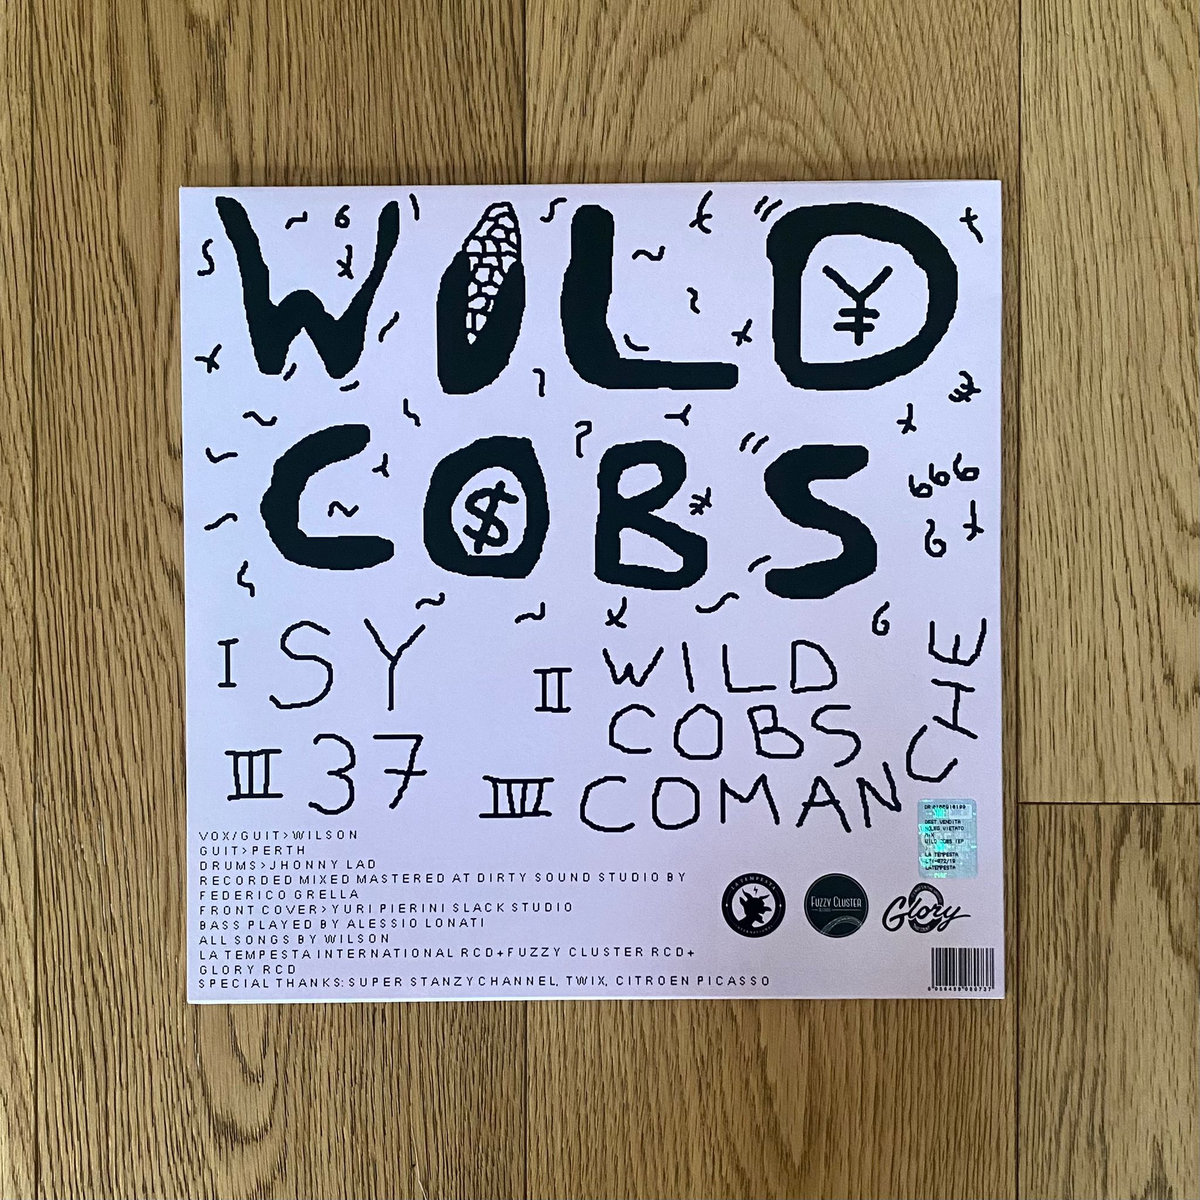 WILD
COBS
I SY
II WILD COBS
III 37
IIII COMANCHE
VOX/GUIT>WILSON
GUIT>PERTH
DRUMS>JHONNY LAD
RECORDED MIXED MASTERED AT DIRTY SOUND STUDIO BY
FEDERICO GRELLA
FRONT COVER>YURI PIERINI SLACK STUDIO
BASS PLAYED BY ALESSIO LONATI
ALL SONGS BY WILSON
LA TEMPESTA INTERNATIONAL RCD+FUZZY CLUSTER RCD+
GLORY RCD
SPECIAL THANKS: SUPER STANZYCHANNEL, TWIX, CITROEN PICASSO
LA TEMPESTA
INTERNATIONAL
FUZZY CLUSTER
Glory
DEST.VENDITA
NOLEG.VIETATO
LA TEMPESTA
LATEMPESTA